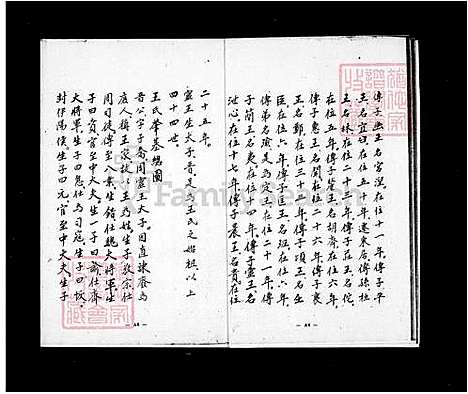 傳子幽王名宮湼在位十一年傳子平
王名宜臼在位五十年遷東居傳孫桓
王名林在位二十三年傳子莊王名佗
在位十五年傳子釐王名胡齊在位五年
傳子惠王名閬在位二十六年傳子襄
王名鄭在位三十三年傳子頃王名壬
臣在位六年傳子匡王名班在位六年
傳弟名瑜是為定王在位二十一年傳
子簡王名夷在位十四年傳子靈王名
泄心在位二十七年傳子景王名貴在位
二十五年。
靈王生太子晋是為王氏之始祖以上
四十四世。
王氏肇基總圖
晉公字子喬周靈王太子因直諫廢為
庶人稱王家故以王為姓生子敬宗仕
周司徒傳至八葉生錯仕魏大將軍生
子曰賁官至中大夫生一子曰渝仕齊
大將軍生子曰息仕為司寇生子曰恢
封伊陽侯生子曰元官至中大夫生子
FamilySearch